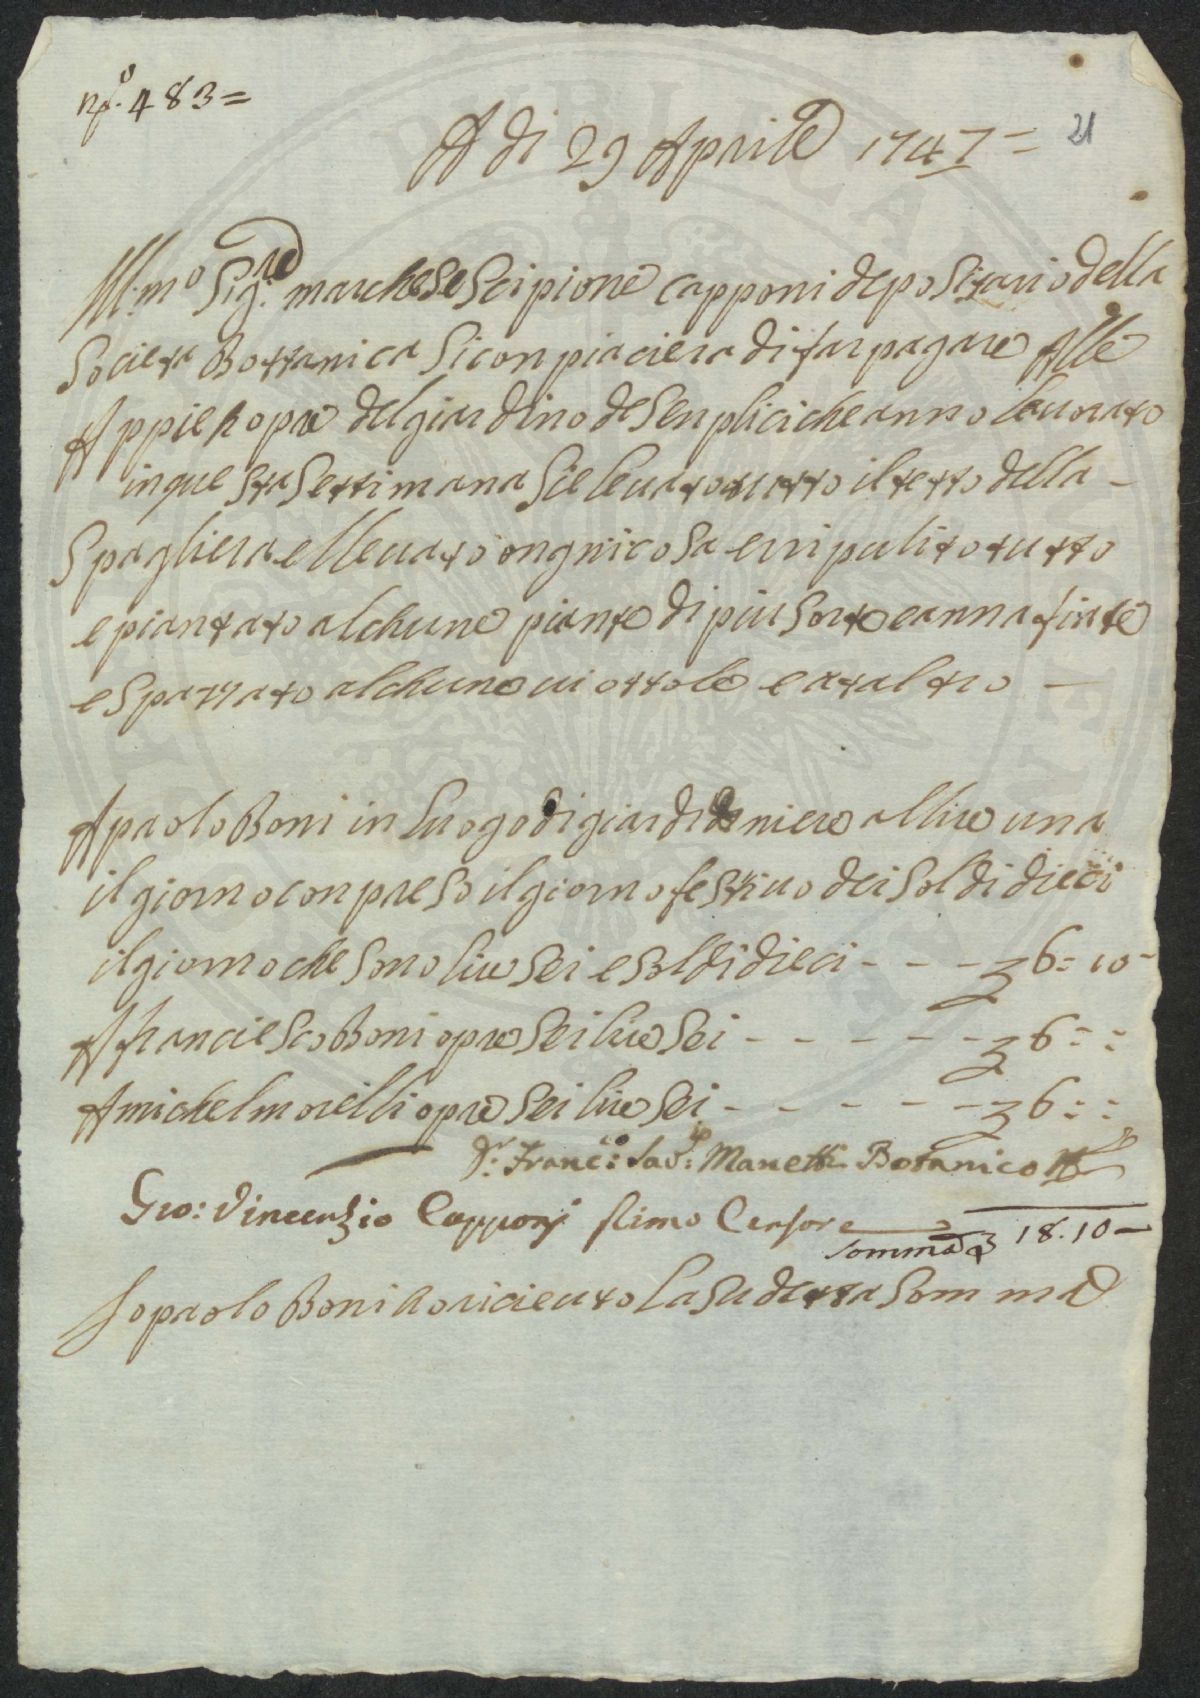 n.º 483=
21
A di 29 Aprile 1747=
Ill:mo Sig:re marchese Scipione capponi depositario della
Societa Bottanica Si conpiaciera di far pagare Alle
Appie hopre del giardino de Senplici che anno leuorato
in que sta Settimana Sie leuato tutto il tetto della -
Spagliera elleuato ongni cosa erripulito tutto
e piantato alchune piante di piu Sorte e annafiate
e Spazzato alchune uiottole e ataltro —
A paolo Boni in luogo di giardiniere allire una
il giorno conpreso il giorno festiuo dei Soldi dieci
il giorno che sono lire Sei e Soldi dieci - - - 6: 10-
A franciesco Boni opre Sei lire Sei - - - - - 6: :
A michel morelli opre Sei lire Sei - - - - - 6: :
Dr: Franc:o Sav:o Manetti Botanico
Gio: Vincenzio Capponi Primo Censore
Somma 18.10-
Io paolo Boni ho riceuto la Sudetta Somma